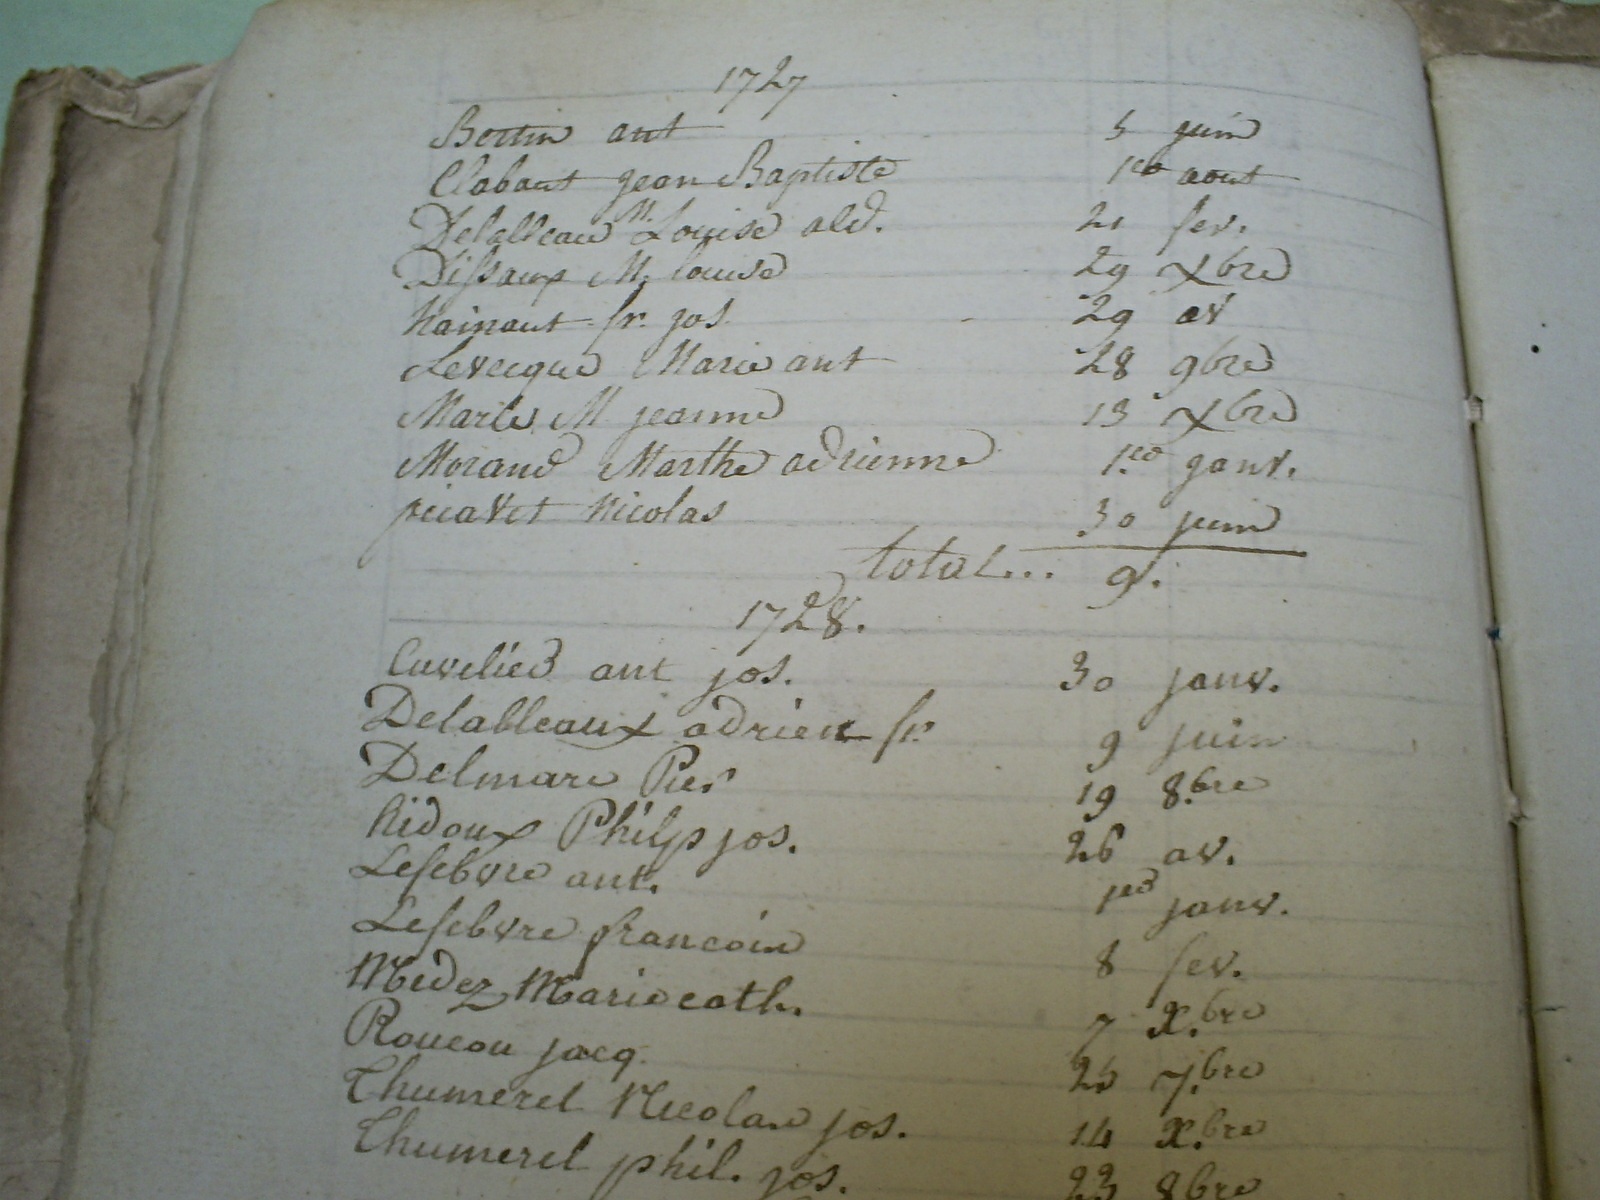 1727
Bertin ant 5 juin
Clabaut jean Baptiste 1er aout
Delableau M. Louise ald. 21 fev.
Dissaux M. louise 29 Xbre
hainaut fr. jos. 29 av
Levecque Marie ant 28 9bre
Marle M jeanne 13 Xbre
Morand Marthe adrienne 1er janv.
piavet nicolas 30 juin
total... 9.
1728.
Cuvelier ant jos. 30 janv.
Delableaux adrien fr. 9 juin
Delmare Pier 19 8.bre
hidoux Philip jos. 26 av.
Lefebvre ant. 1er janv.
Lefebvre francois 8 fev.
Medez Marie cath. 7 X.bre
Roucou jacq. 25 7.bre
Thumerel Nicolas jos. 14 X.bre
Thumerel phil. jos. 23 8bre